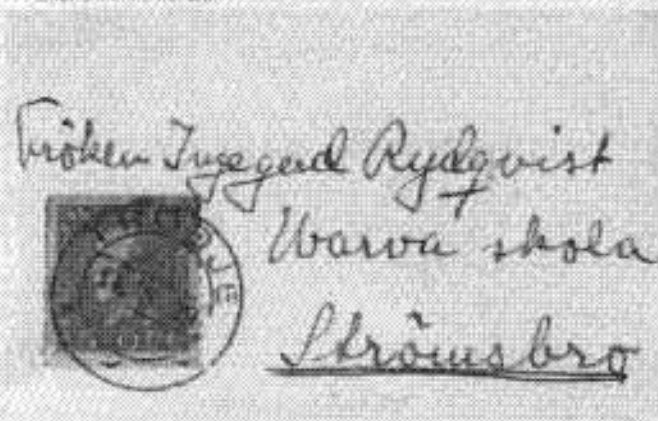 Fröken Ingegerd Rydqvist
Warva skola
Strömsbro